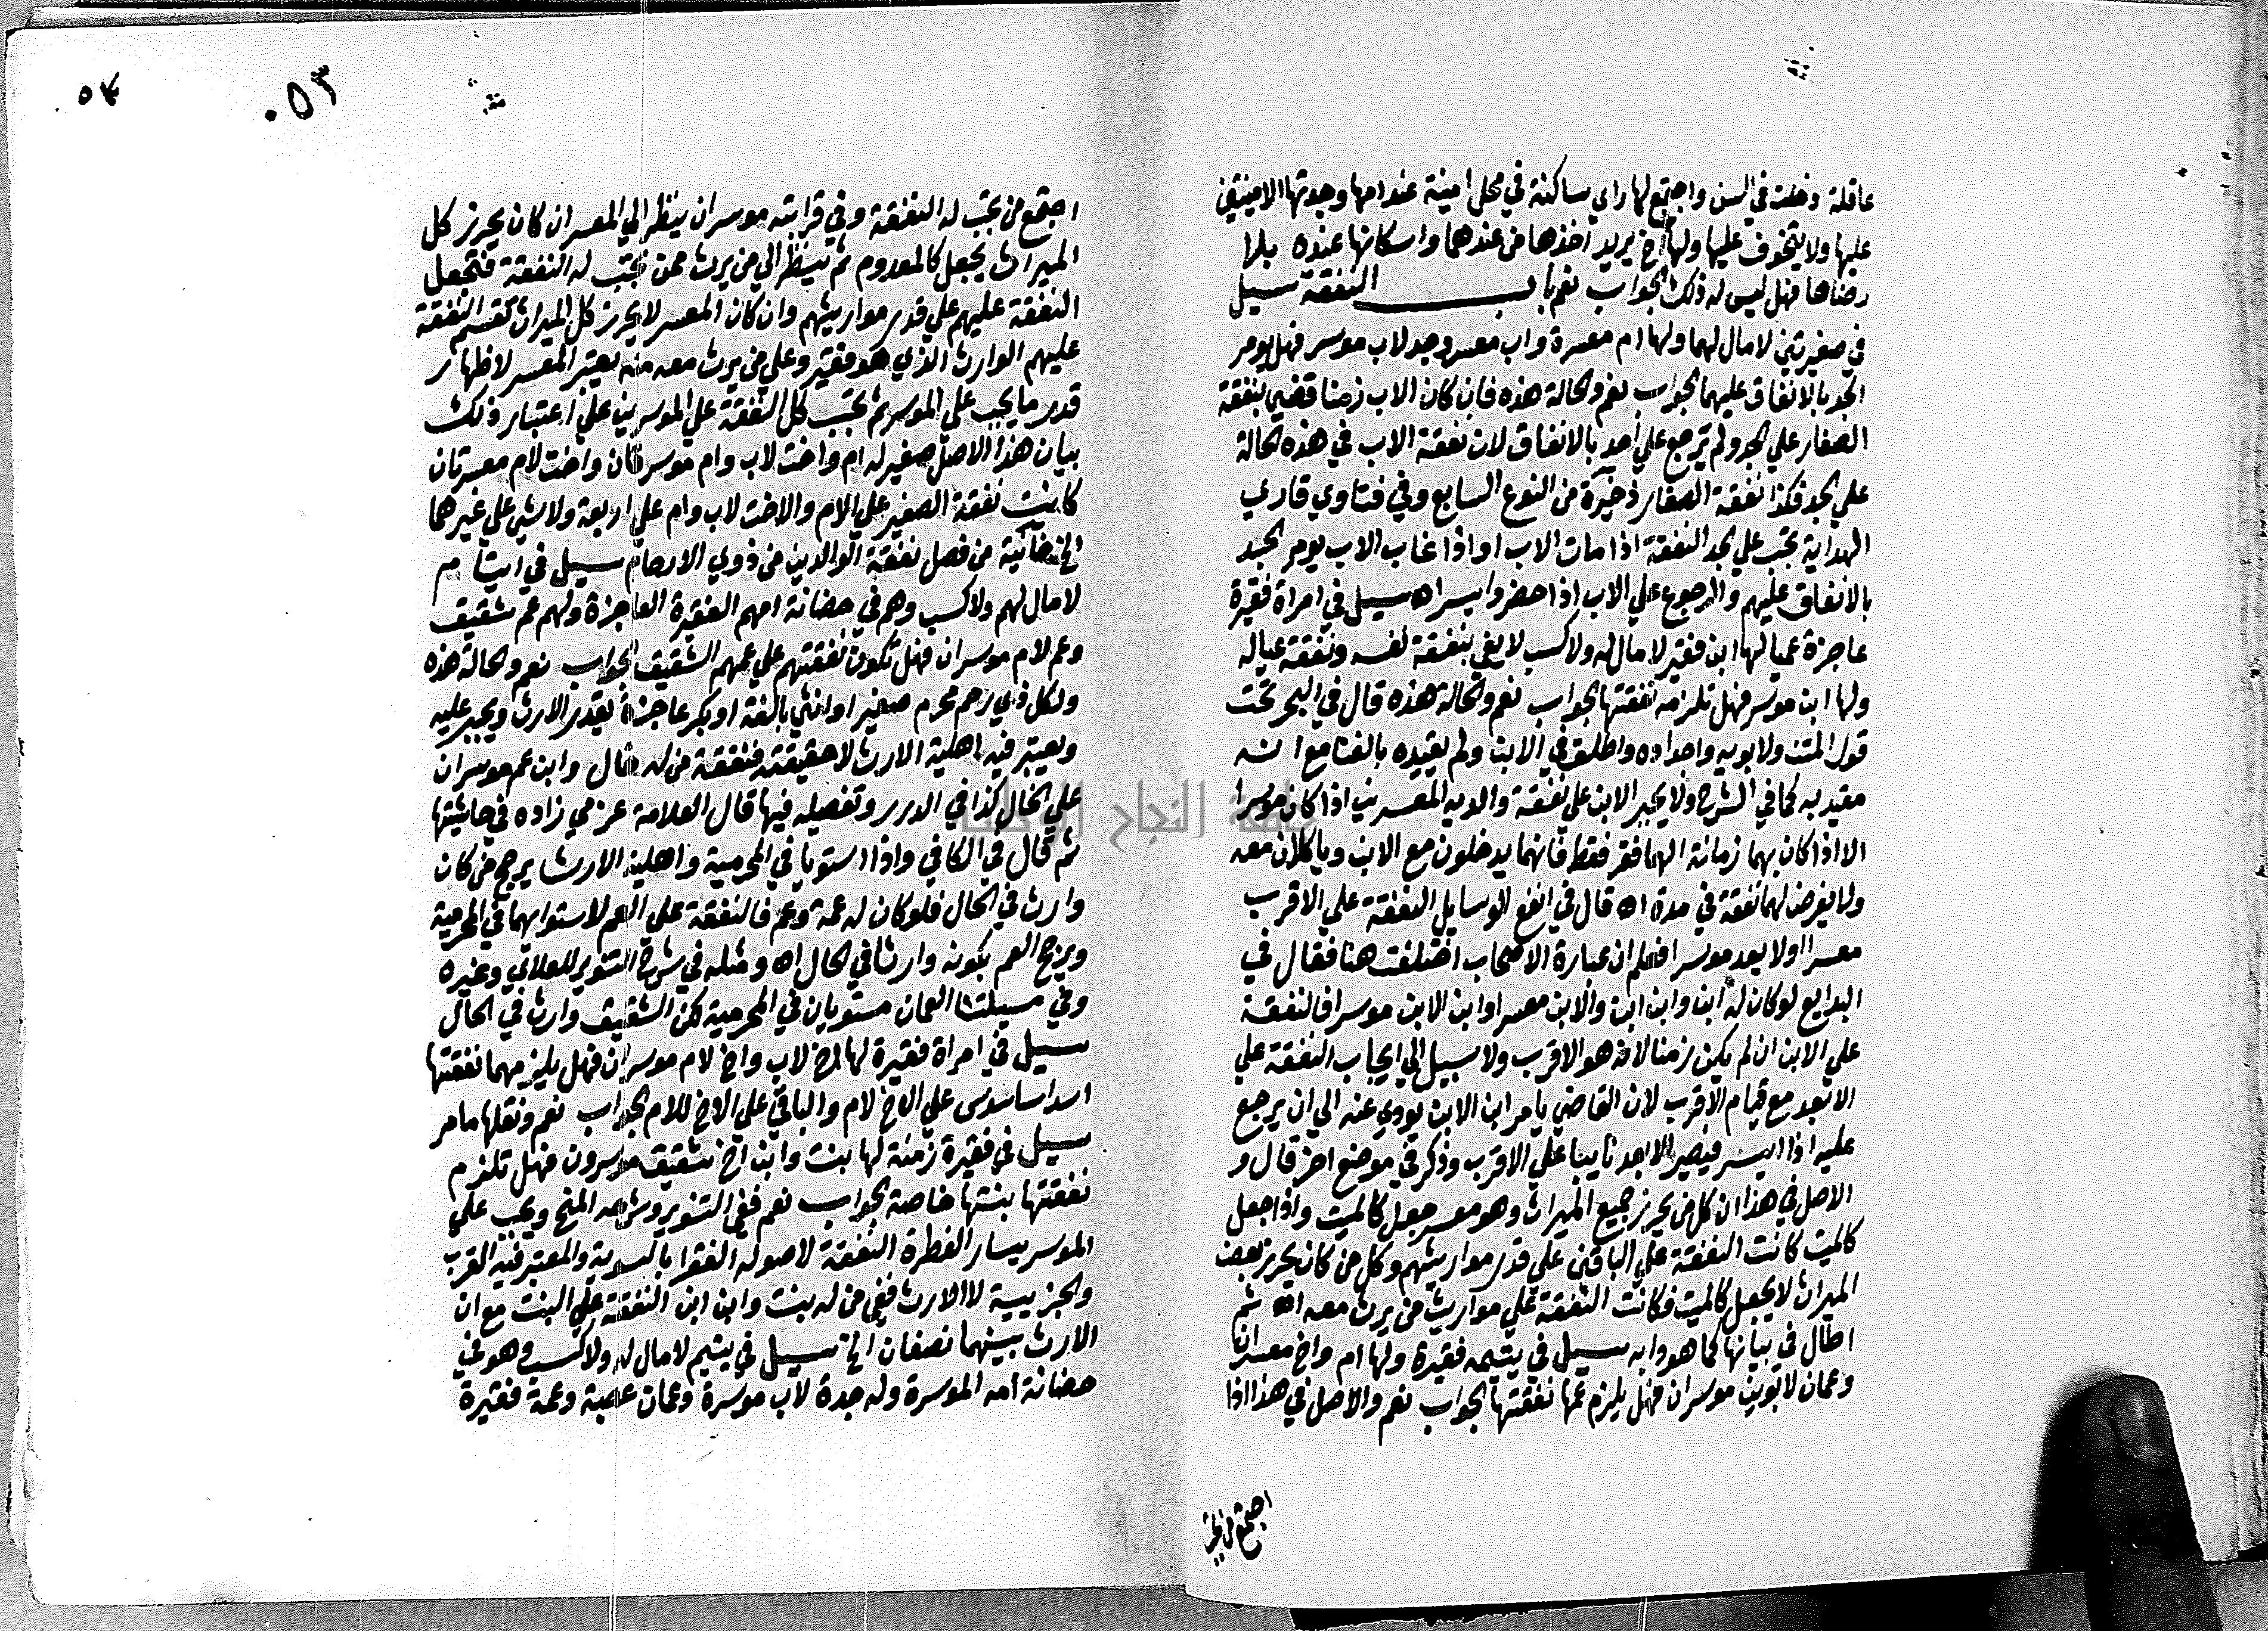 عاقلة دخلت في السن واجتمع لها راي ساكنة في محل امينة عند امها وجدتها الامينتين
عليها ولا يتخوف عليها ولها اخ يريد اخذها من عندهما واسكانها عنده بلا
رضاها فهل ليس له ذلك الجواب نعم باب النفقة سيل
في صغيرتين لا مال لهما ولها ام معسرة واب معسر وجد لاب موسر فهل يومر
الجد بالانفاق عليهما الجواب نعم والحالة هذه فان كان الاب زمنا قضي بنفقة
الصغار علي الجد ولم يرجع علي احد بالانفاق لان نفقة الاب في هذه الحالة
علي الجد فكذا نفقة الصغار ذخيرة من النوع السابع وفي فتاوي قاري
الهداية تجب علي الجد النفقة اذا مات الاب او اذا غاب الاب يومر الجد
بالانفاق عليهم والرجوع علي الاب اذا حضر وايسر اه سيل في امراة فقيرة
عاجزة عميا لها ابن فقير لا مال له ولا كسب لا يفي بنفقة نفسه ونفقة عياله
ولها ابن موسر فهل تلزمه نفقتها الجواب نعم والحالة هذه قال في البحر تحت
قول المتن ولابويه واجداده واطلق في الابن ولم يقيده بالغنا مع انه
مقيد به كما في الشرح ولا يجبر الابن علي نفقة والديه المعسرين اذا كان معسرا
الا اذا كان بهما زمانة الهما فقر فقط فانهما يدخلون مع الابن وياكلان معه
ولا يفرض لهما نفقة في حدة اه قال في انفع الوسايل النفقة علي الاقرب
معسرا اولا يعد موسرا فاعلم ان عبارة الاصحاب اختلفت هنا فقال في
البدايع لو كان له ابن وابن ابن والابن معسر او ابن الابن موسر فالنفقة
علي الابن ان لم يكن زمنا لانه هو الاقرب ولا سبيل الي ايجاب النفقة علي
الابعد مع قيام الاقرب لان القاضي يامر ابن الابن يودي عنه الي ان يرجع
عليه اذا ايسر فيصير الابعد نايبا علي الاقرب وذكر في موضع اخر قال و
الاصل في هذا ان كل من يحرز جميع الميراث وهو معسر جعل كالميت واذا جعل
كالميت كانت النفقة علي الباقين علي قدر مواريثهم وكل من كان يحرز بعض
الميراث لا يجعل كالميت فكانت النفقة علي مواريث من يرث معه اه ثم
اطال في بيانها كما هو دابه سيل في يتيمه فقيرة ولها ام واخ معسران
وعمان لابوين موسران فهل يلزم عمها نفقتها الجواب نعم والاصل في هذا اذا
اجتمع من تجب
٥٣
اجتمع من تجب له النفقة وفي قرابته موسران ينظر الي المعسر ان كان يحرز كل
الميراث يجعل كالمعدوم ثم ينظر الي من يرث ممن تجب له النفقة فتجعل
النفقة عليهم علي قدر مواريثهم وان كان المعسر لا يحرز كل الميراث تقسم النفقة
عليهم الوارث الذي هو فقير وعلي من يرث معه منه يعتبر المعسر لاظهار
قدر ما يجب علي الموسر ثم تجب كل النفقة علي الموسرين علي اعتبار ذلك
بيان هذا الاصل صغير له ام واخت لاب وام موسرتان واخت لام معسرتان
كانت نفقة الصغير علي الام والاخت لاب وام علي اربعة ولا شي علي غيرهما
الخ خانية من فصل نفقة الوالدين من ذوي الارحام سيل في ايتام
لا مال لهم ولا كسب وهم في حضانة امهم الفقيرة العاجزة ولهم عم شقيق
وعم لام موسران فهل تكون نفقتهم علي عمهم الشقيق الجواب نعم والحالة هذه
ولكل ذي رحم محرم صغير او انثي بالغة او بكر عاجزة بقدر الارث ويجبر عليه
ويعتبر فيه اهلية الارث لا حقيقته فنفقة من له خال وابن عم موسران
علي الخال كذا في الدرر وتفصيله فيها قال العلامة عزمي زاده في حاشيتها
ثم قال في الكافي واذا استويا في المحرمية واهلية الارث يرجح من كان
وارث في الحال فلو كان له عمة وعم فالنفقة علي العم لاستوايهما في المحرمية
ويرجح العم بكونه وارثا في الحال اه ومثله في شرح التنوير للعلائي وغيره
وفي مسيلتنا العمان مستويان في المحرمية لكن الشقيق وارث في الحال
سيل في امراة فقيرة لها اخ لاب واخ لام موسران فهل يلزمهما نفقتها
اسداسا سدس علي الاخ لام والباقي علي الاخ للام الجواب نعم ونقلها ما مر
سيل في فقيرة زمنة لها بنت وابن اخ شقيق موسرون فهل تلزم
نفقتها بنتها خاصة الجواب نعم ففي التنوير وشرحه المنح ويجب علي
الموسر يسار الفطرة النفقة لاصوله الفقرا بالسوية والمعتبر فيه القرب
والجزيية لا الارث ففي من له بنت وابن ابن النفقة علي البنت مع ان
الارث بينهما نصفان الخ سيل في يتيم لا مال له ولا كسب وهو في
حضانة امه الموسرة وله جدة لاب موسرة وعمان عصبة وعمة فقيرة
جامعة النجاح الوطنية